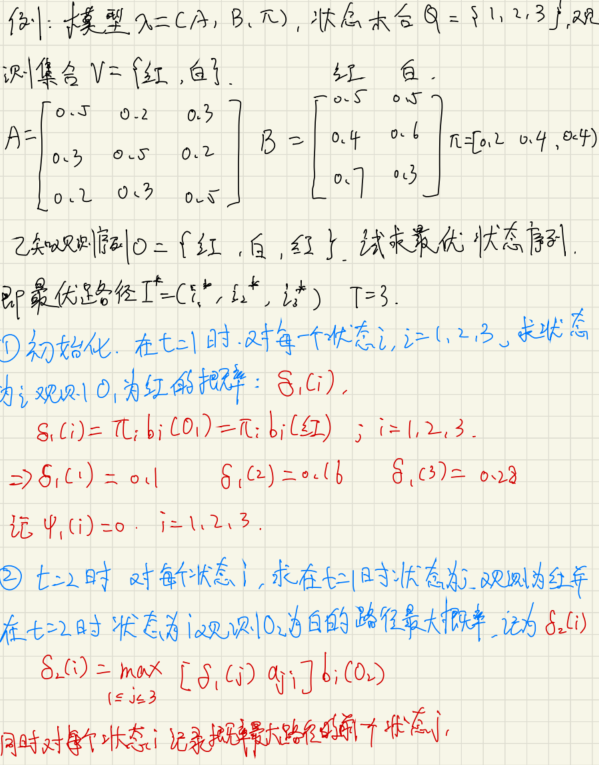 例1:模型 λ=(A, B, π), 状态集合 Q = {1, 2, 3}, 观
测集合 V = {红, 白}.
红 白.
A = [0.5 0.2 0.3 B = [0.5 0.5
0.3 0.5 0.2 0.4 0.6 π=[0.2 0.4, 0.4)
0.2 0.3 0.5] 0.7 0.3]
已知观测序列O = {红, 白, 红}. 试求最优状态序列.
即最优路径 I*=(i₁*, i₂*, i₃*) T=3.
① 初始化. 在t=1时.对每一个状态i, i=1, 2, 3, 求状态
为i观测O₁为红的概率: δ₁(i),
δ₁(i) = πᵢbᵢ(O₁) = πᵢbᵢ(红) ; i=1, 2, 3.
⇒ δ₁(1) = 0.1 δ₁(2) = 0.16 δ₁(3) = 0.28
记 ψ₁(i)=0. i=1, 2, 3.
② t=2时 对每个状态i, 求在t=1时状态为j 观测为红并
在t=2时状态为i观测O₂为白的路径最大概率, 记为 δ₂(i)
δ₂(i) = max [δ₁(j) aⱼᵢ] bᵢ(O₂)
1≤j≤3
同时对每个状态i 记录概率最大路径的前一个状态j,